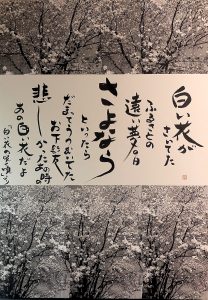 白い花が
さいてた
ふるさとの
遠い夢の日
さよなら
といったら
だまってうつむいてた
お下げ髪
悲しかったあの時の
あの白い花だよ
「白い花の咲く頃」より